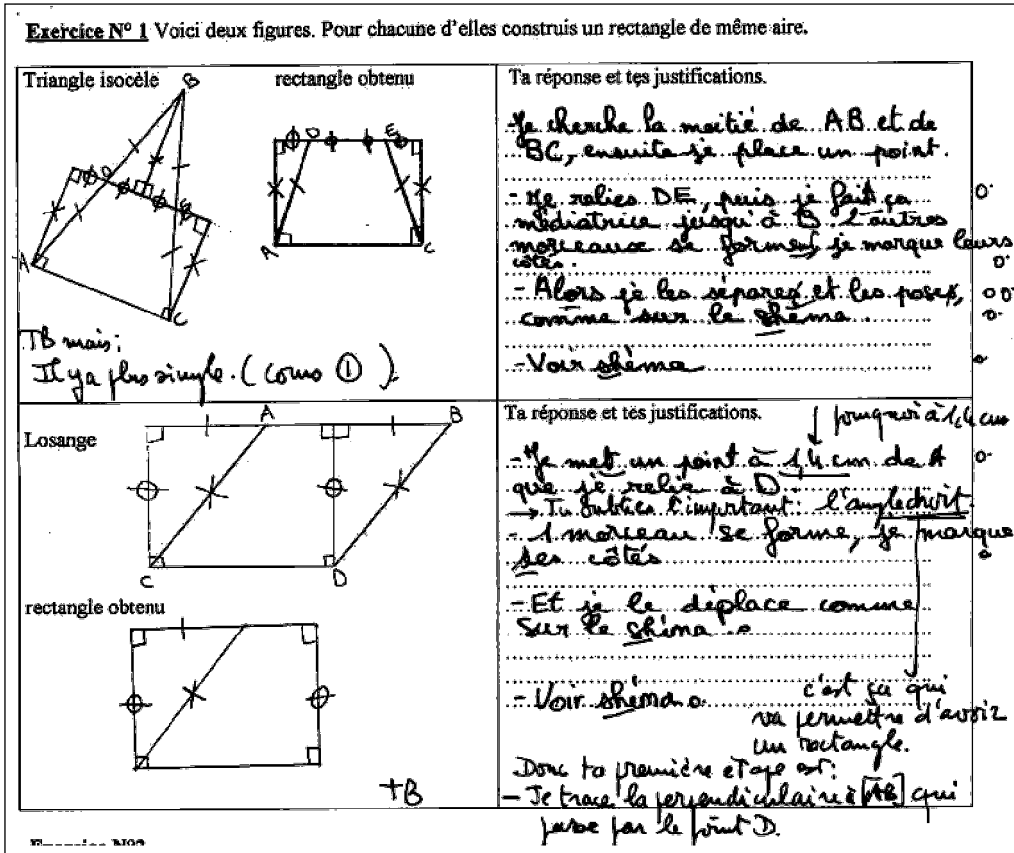 Exercice N° 1 Voici deux figures. Pour chacune d'elles construis un rectangle de même aire.
Triangle isocèle
B
rectangle obtenu
D
E
A
C
D
E
A
C
TB mais;
Il y a plus simple. (corno ①)
Ta réponse et tes justifications.
- Je cherche la moitié de AB et de
BC, ensuite je place un point.
- Je relies DE, puis je fait ça
médiatrice jusqu'à B. 2 autres
morceaux se forment je marque leurs
côtés.
- Alors je les sépares et les poses,
comme sur le shéma.
- Voir shéma
Losange
A
B
C
D
rectangle obtenu
+B
Ta réponse et tes justifications.
pourquoi à 1,4 cm
- Je met un point à 1,4 cm de A
que je relie à D.
→ Tu oublies l'important: l'angle droit.
- 1 morceau se forme, je marque
ses côtés
- Et je le déplace comme
Sur le shéma
- Voir shéma
c'est ça qui
va permettre d'avoir
un rectangle.
Donc ta première étape est:
- Je trace la perpendiculaire à [AB] qui
passe par le point D.